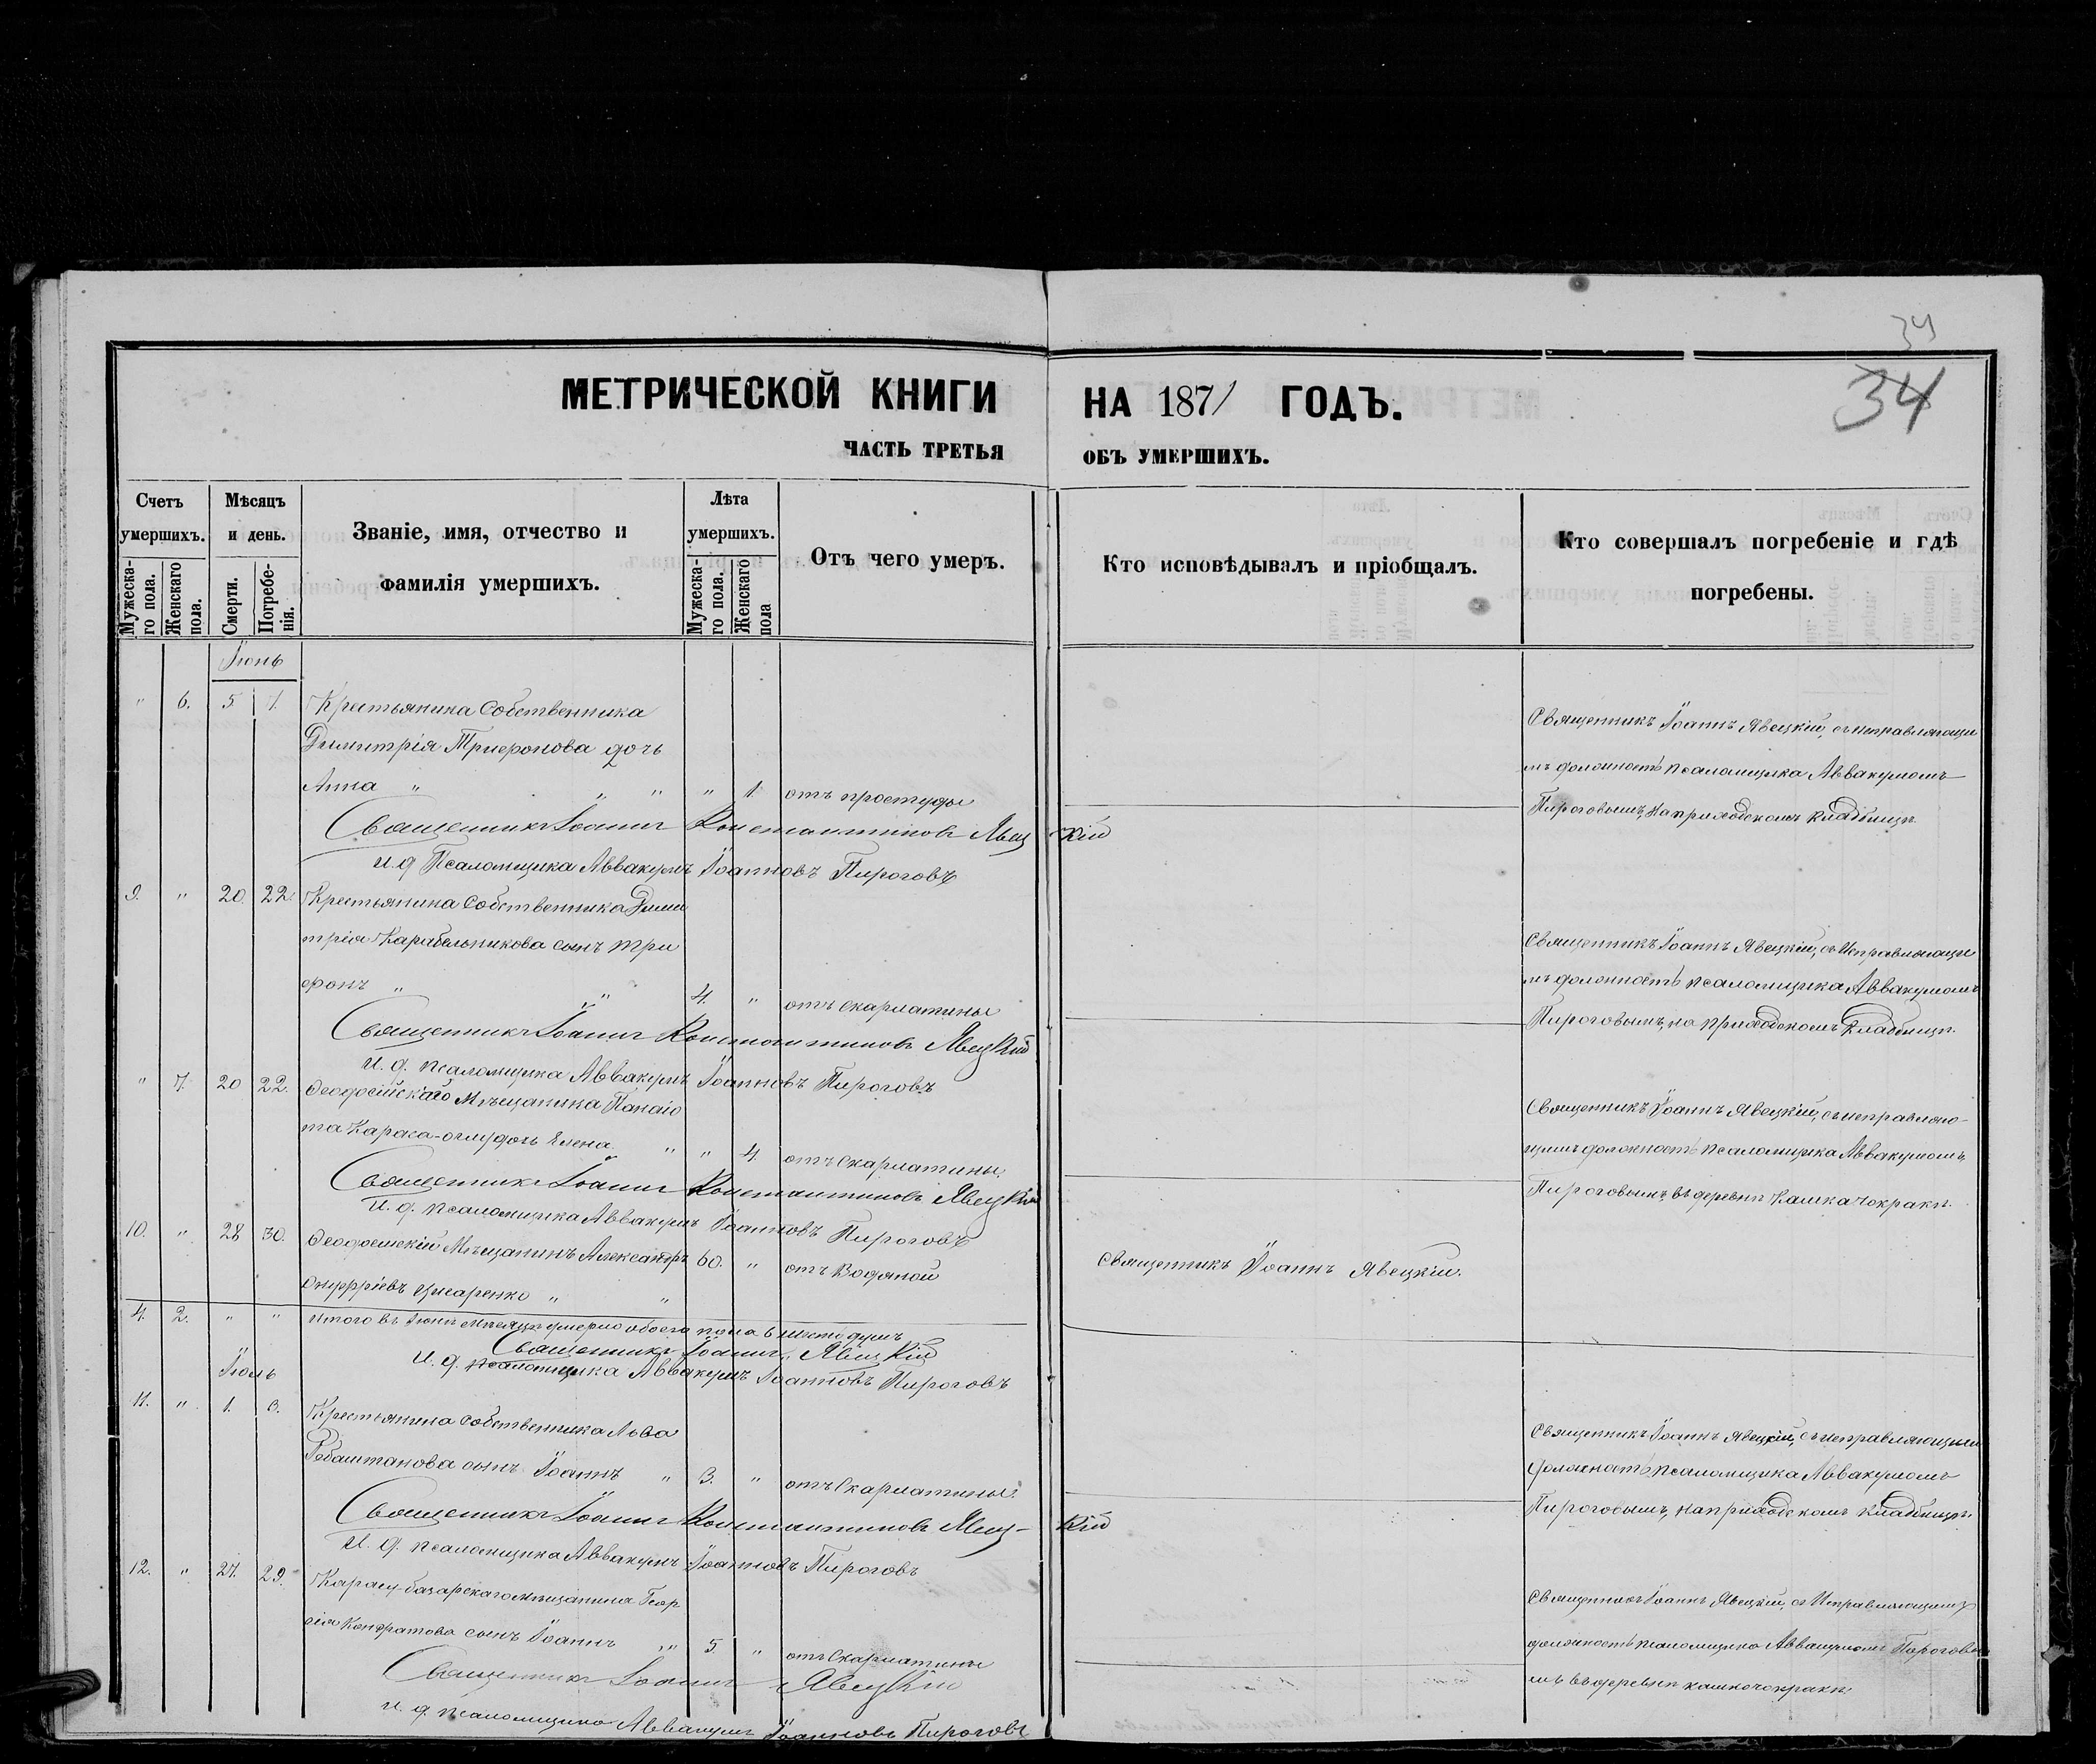 34
34
МЕТРИЧЕСКОЙ КНИГИ НА 1871 ГОДЪ.
ЧАСТЬ ТРЕТЬЯ ОБЪ УМЕРШИХЪ.
Счетъ умершихъ.
Мужеска-го пола.
Женскаго пола.
Мѣсяцъ и день.
Смерти.
Погребе-нія.
Званіе, имя, отчество и фамилія умершихъ.
Лѣта умершихъ.
Мужеска-го пола.
Женскаго пола
Отъ чего умеръ.
Кто исповѣдывалъ и пріобщалъ.
Кто совершалъ погребеніе и гдѣ погребены.
Іюнь
" 6. 5. 7. Крестьянина Собственника
Димитрія Трифонова дочь
Анна " " " " 1. отъ простуды
Священникъ Іоаннъ Явецкій, съ исправляющи
мъ должность псаломщика Аввакумомъ
Пироговымъ, на приходскомъ кладбищѣ.
Священникъ Іоаннъ Константиновъ Явецкій
И. д. Псаломщика Аввакумъ Іоанновъ Пироговъ
9. " 20. 22. Крестьянина Собственника Дими
трія Карабельникова сынъ Три
фонъ " " 4. " отъ скарлатины
Священникъ Іоаннъ Явецкій, съ исправляющи
мъ должность псаломщика Аввакумомъ
Пироговымъ, на приходскомъ кладбищѣ.
Священникъ Іоаннъ Константиновъ Явецкій
И. д. псаломщика Аввакумъ Іоанновъ Пироговъ
" 7. 20 22. Ѳеодосійскаго Мѣщанина Панаіо
та Карага-оглу дочь Елена " " 4. отъ скарлатины.
Священникъ Іоаннъ Явецкій, съ исправляю-
щимъ должность псаломщика Аввакумомъ
Пироговымъ, въ деревнѣ Кашкачокракъ.
Священникъ Іоаннъ Константиновъ Явецкій
И. д. псаломщика Аввакумъ Іоанновъ Пироговъ
10. " 28 30. Ѳеодосійскій Мѣщанинъ Александръ 60. " отъ Водяной
Онуфріевъ " "
Священникъ Іоаннъ Явецкій.
4. 2. " " Итого въ Іюнѣ Мѣсяцѣ умерло обоего пола 6 шесть душъ
Священникъ Іоаннъ Явецкій
И. д. псаломщика Аввакумъ Іоанновъ Пироговъ
Іюль
11. " 1. 3. Крестьянина собственника Льва
сынъ Іоаннъ " 3. " отъ скарлатины.
Священникъ Іоаннъ Явецкій, съ исправляющимъ
должность псаломщика Аввакумомъ
Пироговымъ, на приходскомъ кладбищѣ.
Священникъ Іоаннъ Константиновъ Явец-кій
И. д. псаломщика Аввакумъ Іоанновъ Пироговъ
12. " 27. 29. Карасу-базарскаго мѣщанина Геор
гія Кондратова сынъ Іоаннъ " 5. " отъ скарлатины
Священникъ Іоаннъ Явецкій, съ Исправляющимъ
должность псаломщика Аввакумомъ Пироговы
мъ въ деревнѣ кашкачокракъ
Священникъ Іоаннъ Явецкій
И. д. псаломщика Аввакумъ Іоанновъ Пироговъ